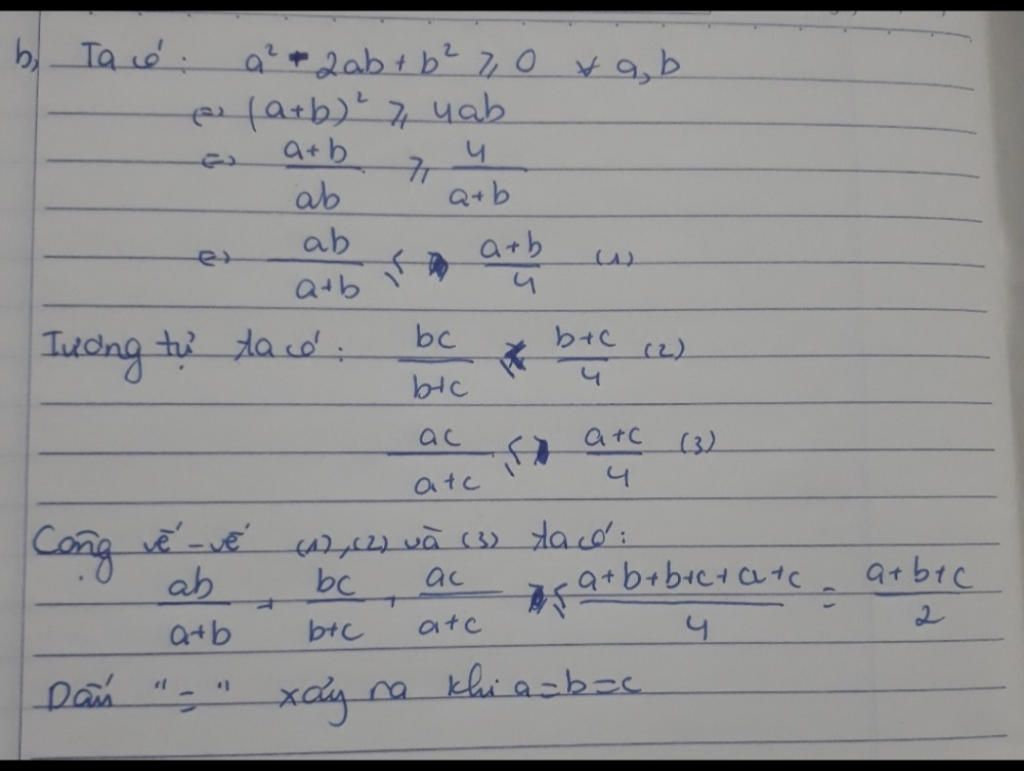 b, Ta có: a² - 2ab + b² ≥ 0 ∀ a,b
⇔ (a+b)² ≥ 4ab
⇔ (a+b)/(ab) ≥ 4/(a+b)
⇔ (ab)/(a+b) ≤ (a+b)/4 (1)
Tương tự ta có: (bc)/(b+c) ≤ (b+c)/4 (2)
(ac)/(a+c) ≤ (a+c)/4 (3)
Cộng vế-vế (1),(2) và (3) ta có:
(ab)/(a+b) + (bc)/(b+c) + (ac)/(a+c) ≤ (a+b+b+c+a+c)/4 = (a+b+c)/2
Dấu "=" xảy ra khi a=b=c